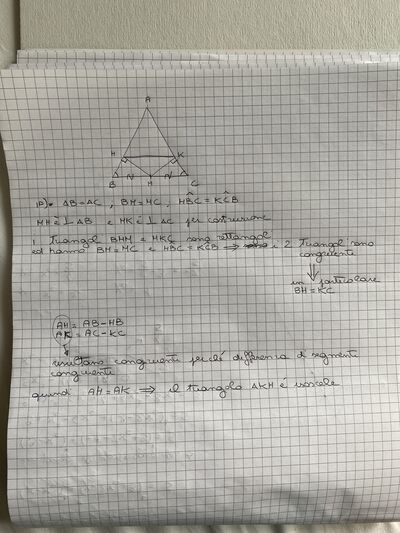 A
H
K
B
M
C
1B). AB=AC, BM=MC, HB̂C = KĈB
MH è ⊥ AB e MK è ⊥ AC per costruzione
i triangoli BHM e MKC sono rettangoli
ed hanno BM=MC e HB̂C=KĈB ⇒ i 2 triangoli sono
congruenti
⇓
in particolare
BH=KC
AH = AB-HB
AK = AC-KC
risultano congruenti perché differenza di segmenti
congruenti
quindi AH=AK ⇒ il triangolo AKH è isoscele